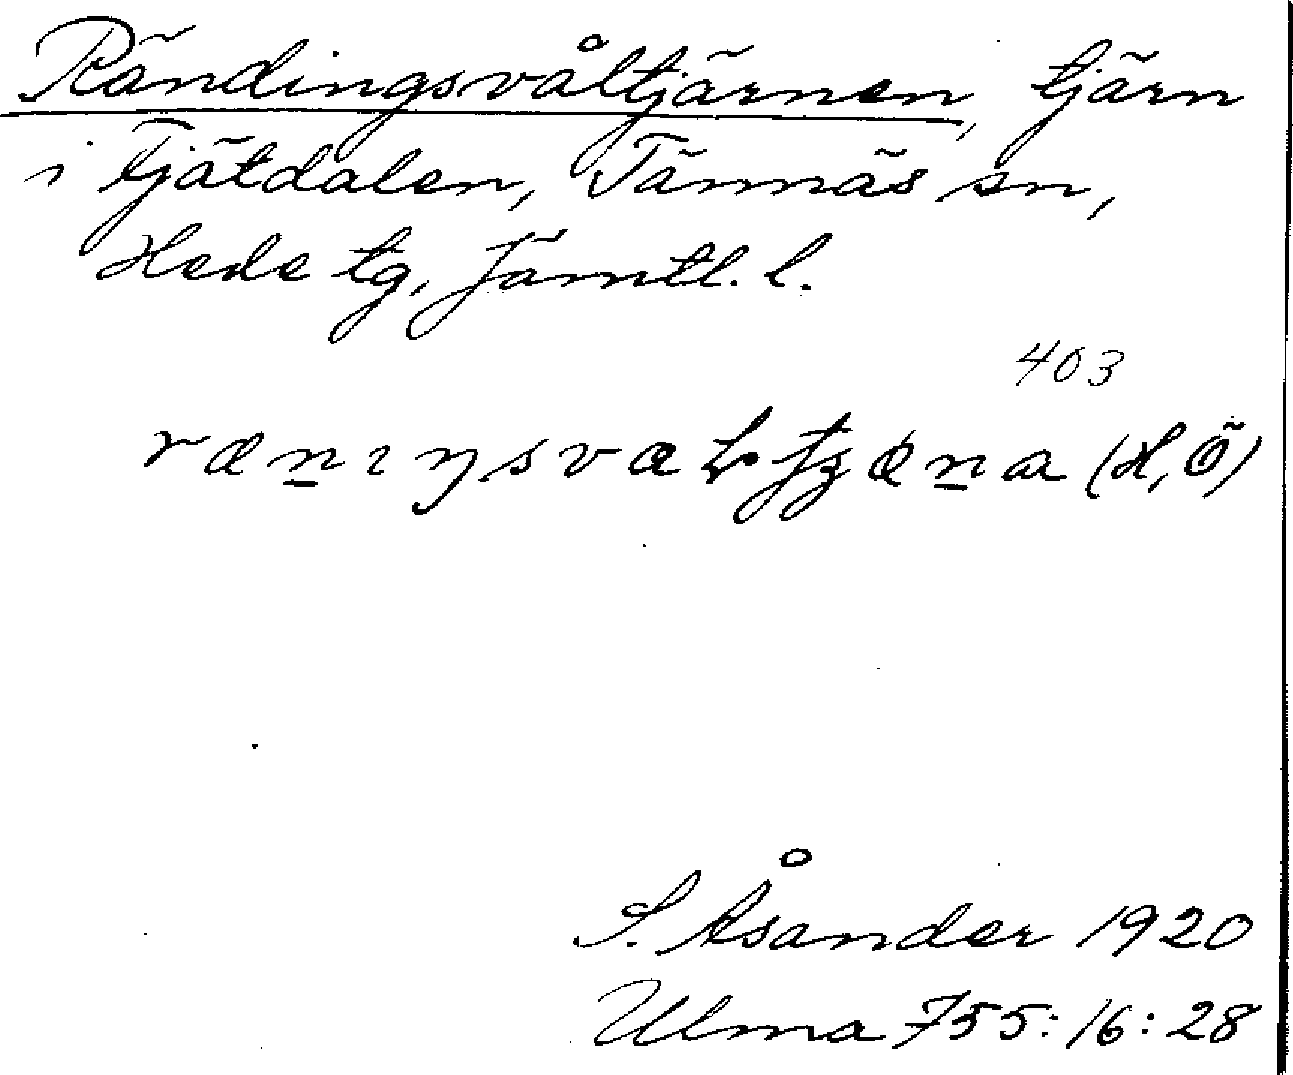 Rändingsvåltjärnen, tjärn
i Tjätdalen, Tännäs sn,
Hede tg, Jämtl. l.
403
(H, Ö)
S. Åsander 1920
Ulma 755:16:28